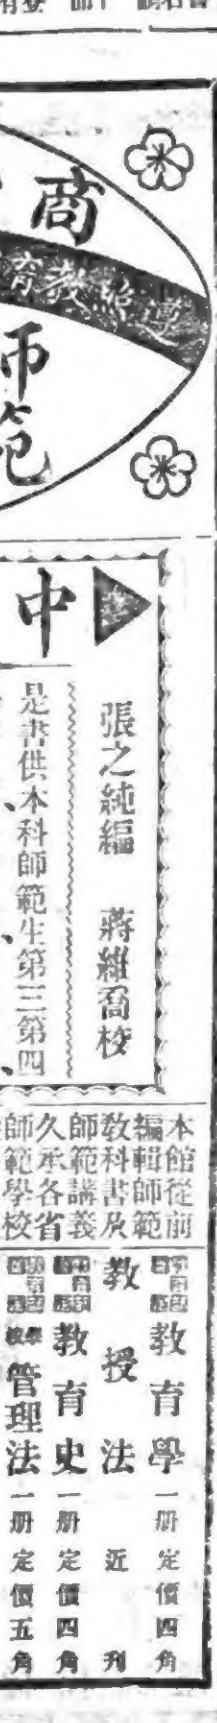 商
遵照教育
師範
中
張之純編　蔣維喬校
是書供本科師範生第三第四
本館從前
編輯師範
教科書及
師範講義
久承各省
師範學校
教育學 一册 定價四角
教授法 近刊
教育史 一册 定價四角
管理法 一册 定價五角